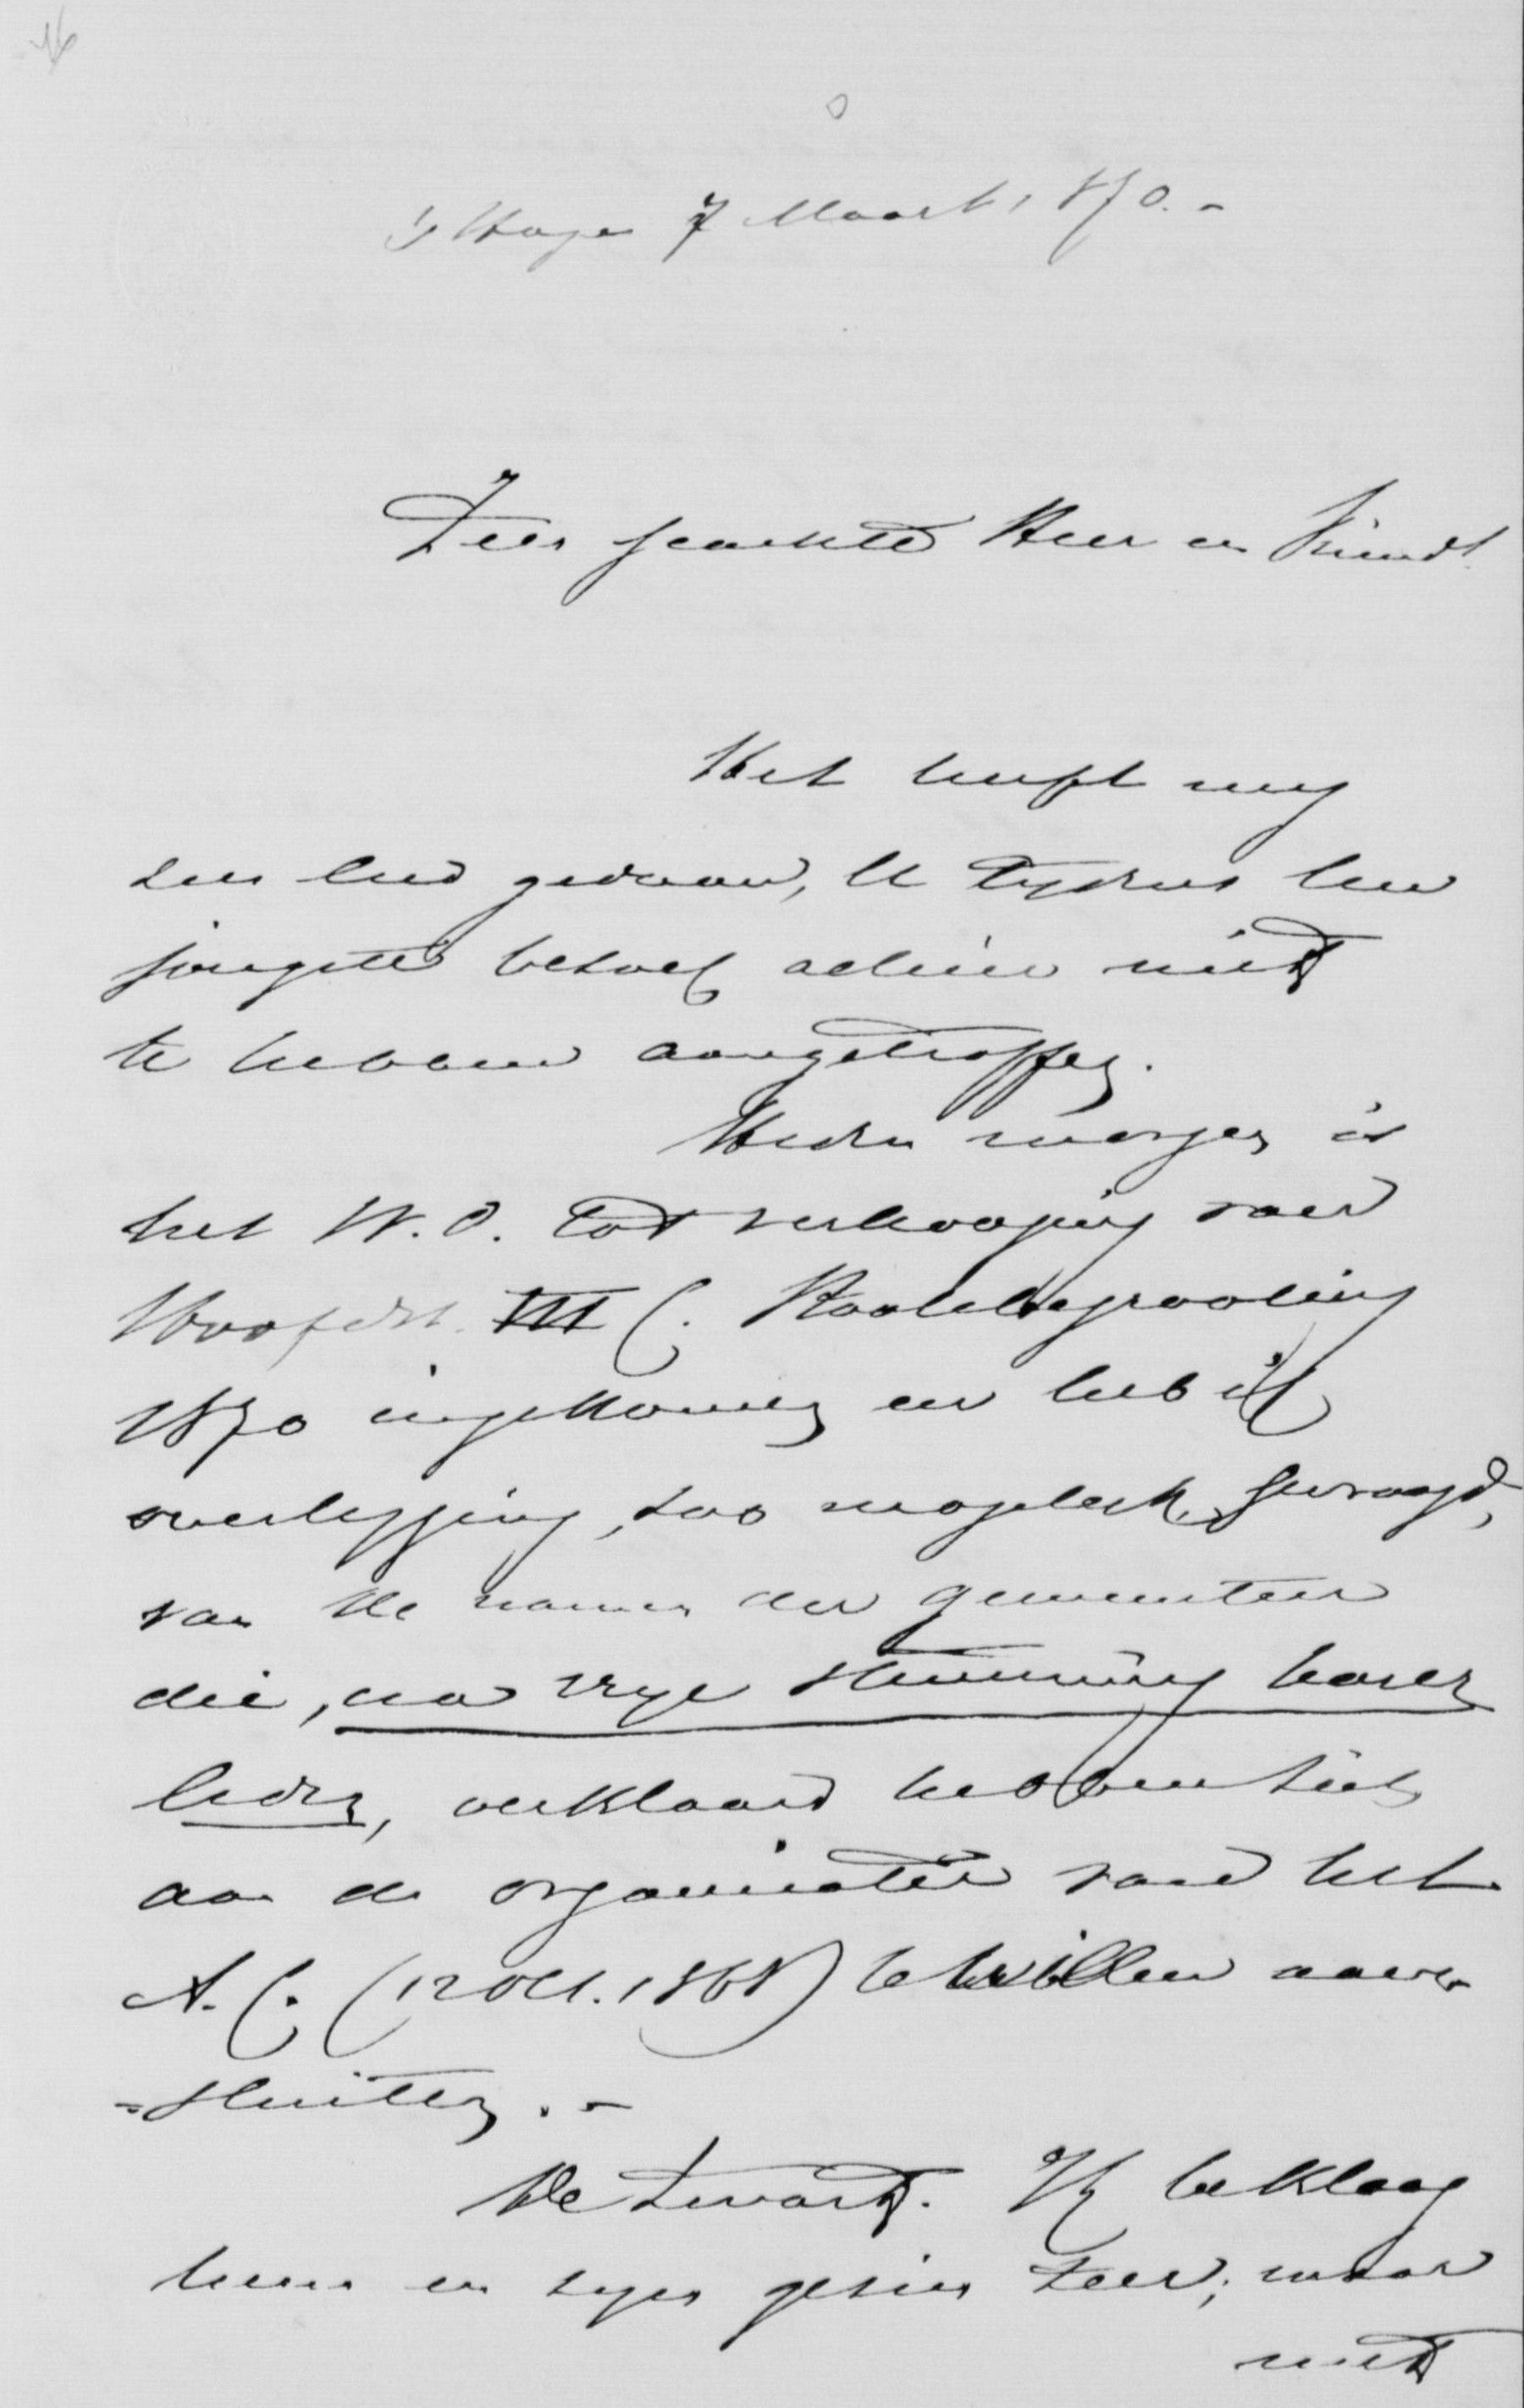 16
's Hage 7 Maart 1870.-
Zeer geachte Heer en Vriend!
Het heeft mij
zeer leed gedaan, U tijdens Uw
jongste bezoek alhier niet
te hebben aangetroffen.
Heden morgen is
het W.O. tot verhooging van
Hoofdst. VII C. Staatsbegrooting
1870 ingekomen en heb ik
overlegging, zoo mogelijk, gevraagd,
van de namen der gemeenten
die, na vrije stemming harer
leden, verklaard hebben zich
aan de organisatie van het
A.C. (12 Oct. 1868) te willen aan-
=sluiten.-
De Zwart. Ik beklaag
hem en zijn gezin zeer; maar
niet